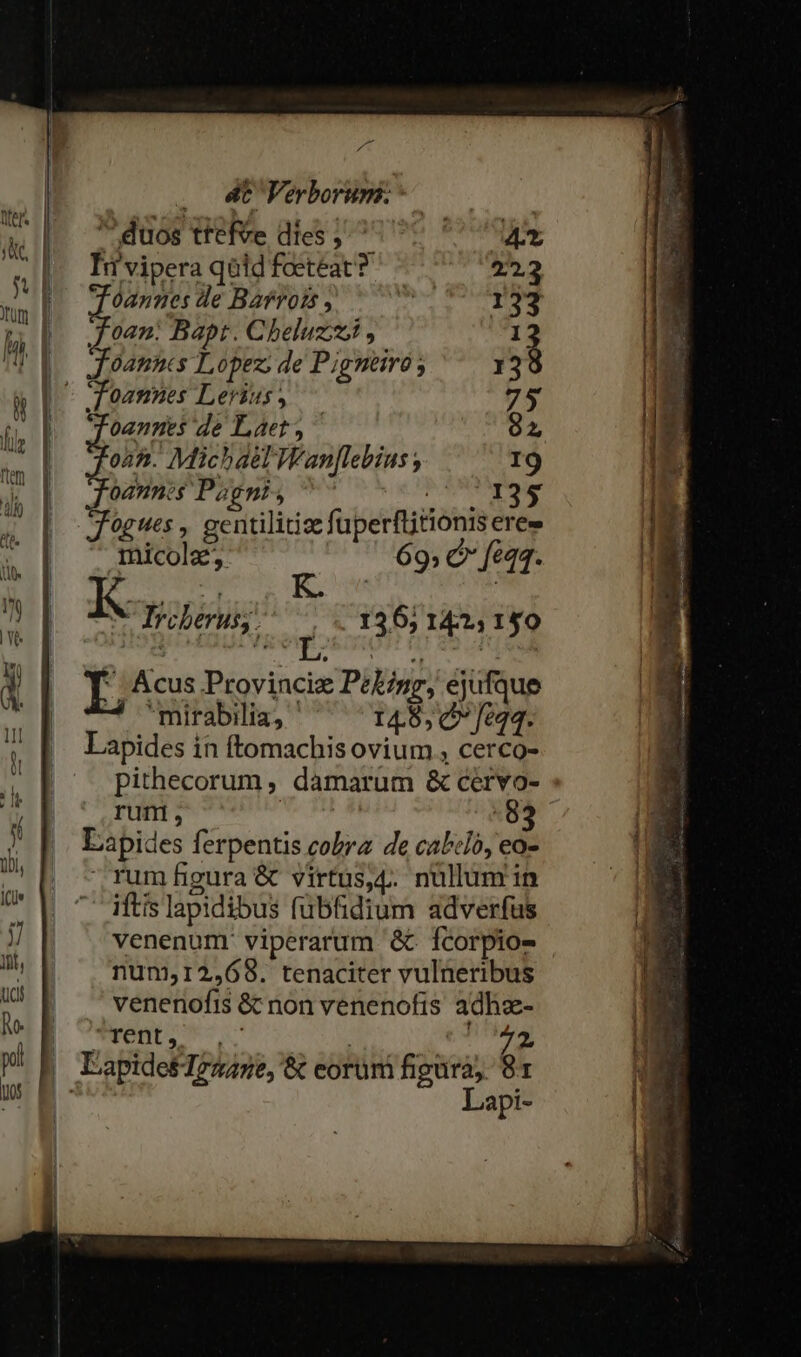 & Verborum.
duos trefve dies, 42
In vipera quid fœteat? 223
Joannes de Barrois, 133
Joan. Bapt. Cheluzzi, 13
Joannes Lopez de Pigneiro, 138
Joannes Lerius, 75
Joannes de Laet, 82
Joan. Michaël Wanſlebius, 19
Joannes Pagni, 135
Jogues, gentilitiæ ſuperſtitionis ere-
micolæ, 69, & ſeqq.
K. K.
Ircherus, 136, 142, 150
L.
L Acus Provinciæ Peking, ejuſque
mirabilia, 148, & ſeqq.
Lapides in ſtomachis ovium, cerco-
pithecorum, damarum & cervo-
rum, 83
Lapides ſerpentis cobra de cabelo, eo-
rum figura & virtus, 4. nullum in
iſtis lapidibus ſubſidium adverſus
venenum viperarum & ſcorpio-
num, 12, 68. tenaciter vulneribus
venenoſis & non venenoſis adhæ-
rent, 72
Lapides Iguane, & eorum figura, 81
Lapi-